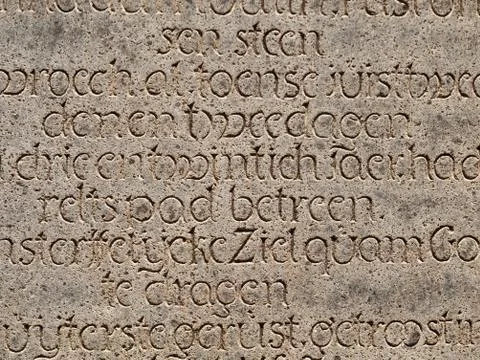 sen steen
vroech. al toense juist twee
den en tweedagen
drie en twintich. Jaer. had
relts pad betreen.
nsterffelycke Ziel quam Go
te dragen
uyterste gerust. getroostin